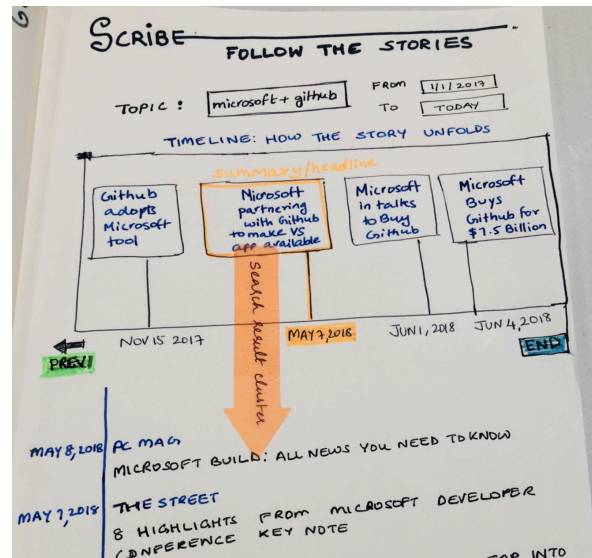 SCRIBE
FOLLOW THE STORIES
TOPIC : microsoft + github
FROM 1/1/2017
TO TODAY
TIMELINE: HOW THE STORY UNFOLDS
summary/headline
Github
adopts
Microsoft
tool
Microsoft
partnering
with Github
to make VS
app available
Microsoft
in talks
to Buy
Github
Microsoft
Buys
Github for
$7.5 Billion
Search result cluster
NOV 15 2017
MAY 7, 2018
JUN 1, 2018
JUN 4, 2018
PREV
END
MAY 8, 2018
PC MAG
MICROSOFT BUILD: ALL NEWS YOU NEED TO KNOW
MAY 7, 2018
THE STREET
8 HIGHLIGHTS FROM MICROSOFT DEVELOPER
CONFERENCE KEY NOTE
INTO